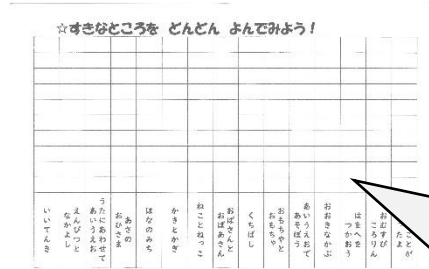 ☆すきなところを どんどん よんでみよう！
ことが
たよ
おむすび
ころりん
はをへを
つかおう
おおきなかぶ
あいうえおで
あそぼう
おもちゃと
おもちゃ
くちばし
おばさんと
おばあさん
ねことねっこ
かきとかぎ
はなのみち
あさの
おひさま
うたにあわせて
あいうえお
えんぴつと
なかよし
いいてんき